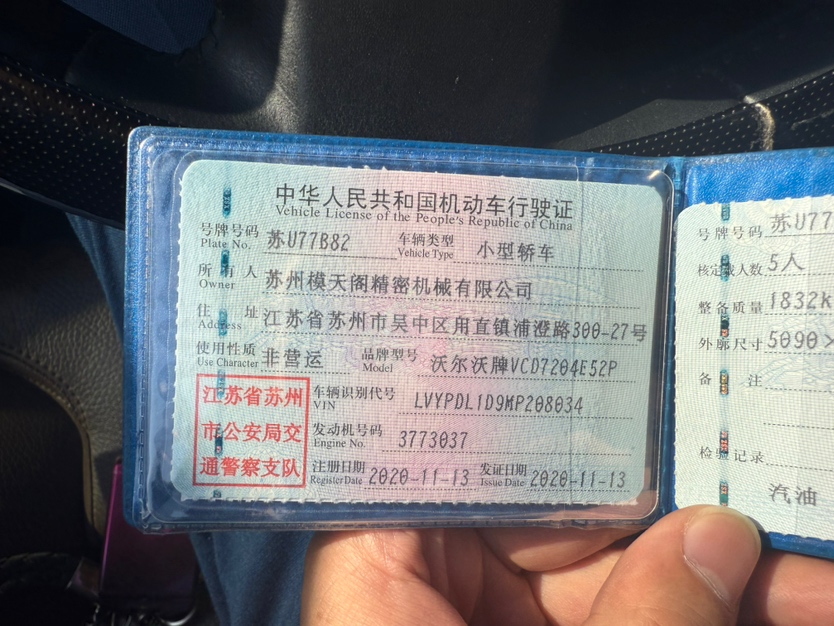 中华人民共和国机动车行驶证
Vehicle License of the People's Republic of China
号牌号码 苏U77B82 车辆类型 小型轿车
Plate No. Vehicle Type
所有人 苏州模天阁精密机械有限公司
Owner
住址 江苏省苏州市吴中区甪直镇浦澄路300-27号
Address
使用性质 非营运 品牌型号 沃尔沃牌VCD7204E52P
Use Character Model
江苏省苏州
市公安局交
通警察支队
车辆识别代号 LVYPDL1D9MP208034
VIN
发动机号码 3773037
Engine No.
注册日期 2020-11-13 发证日期 2020-11-13
Register Date Issue Date
号牌号码 苏U77
核定载人数 5人
整备质量 1832k
外廓尺寸 5090×
备注
检验记录
汽油